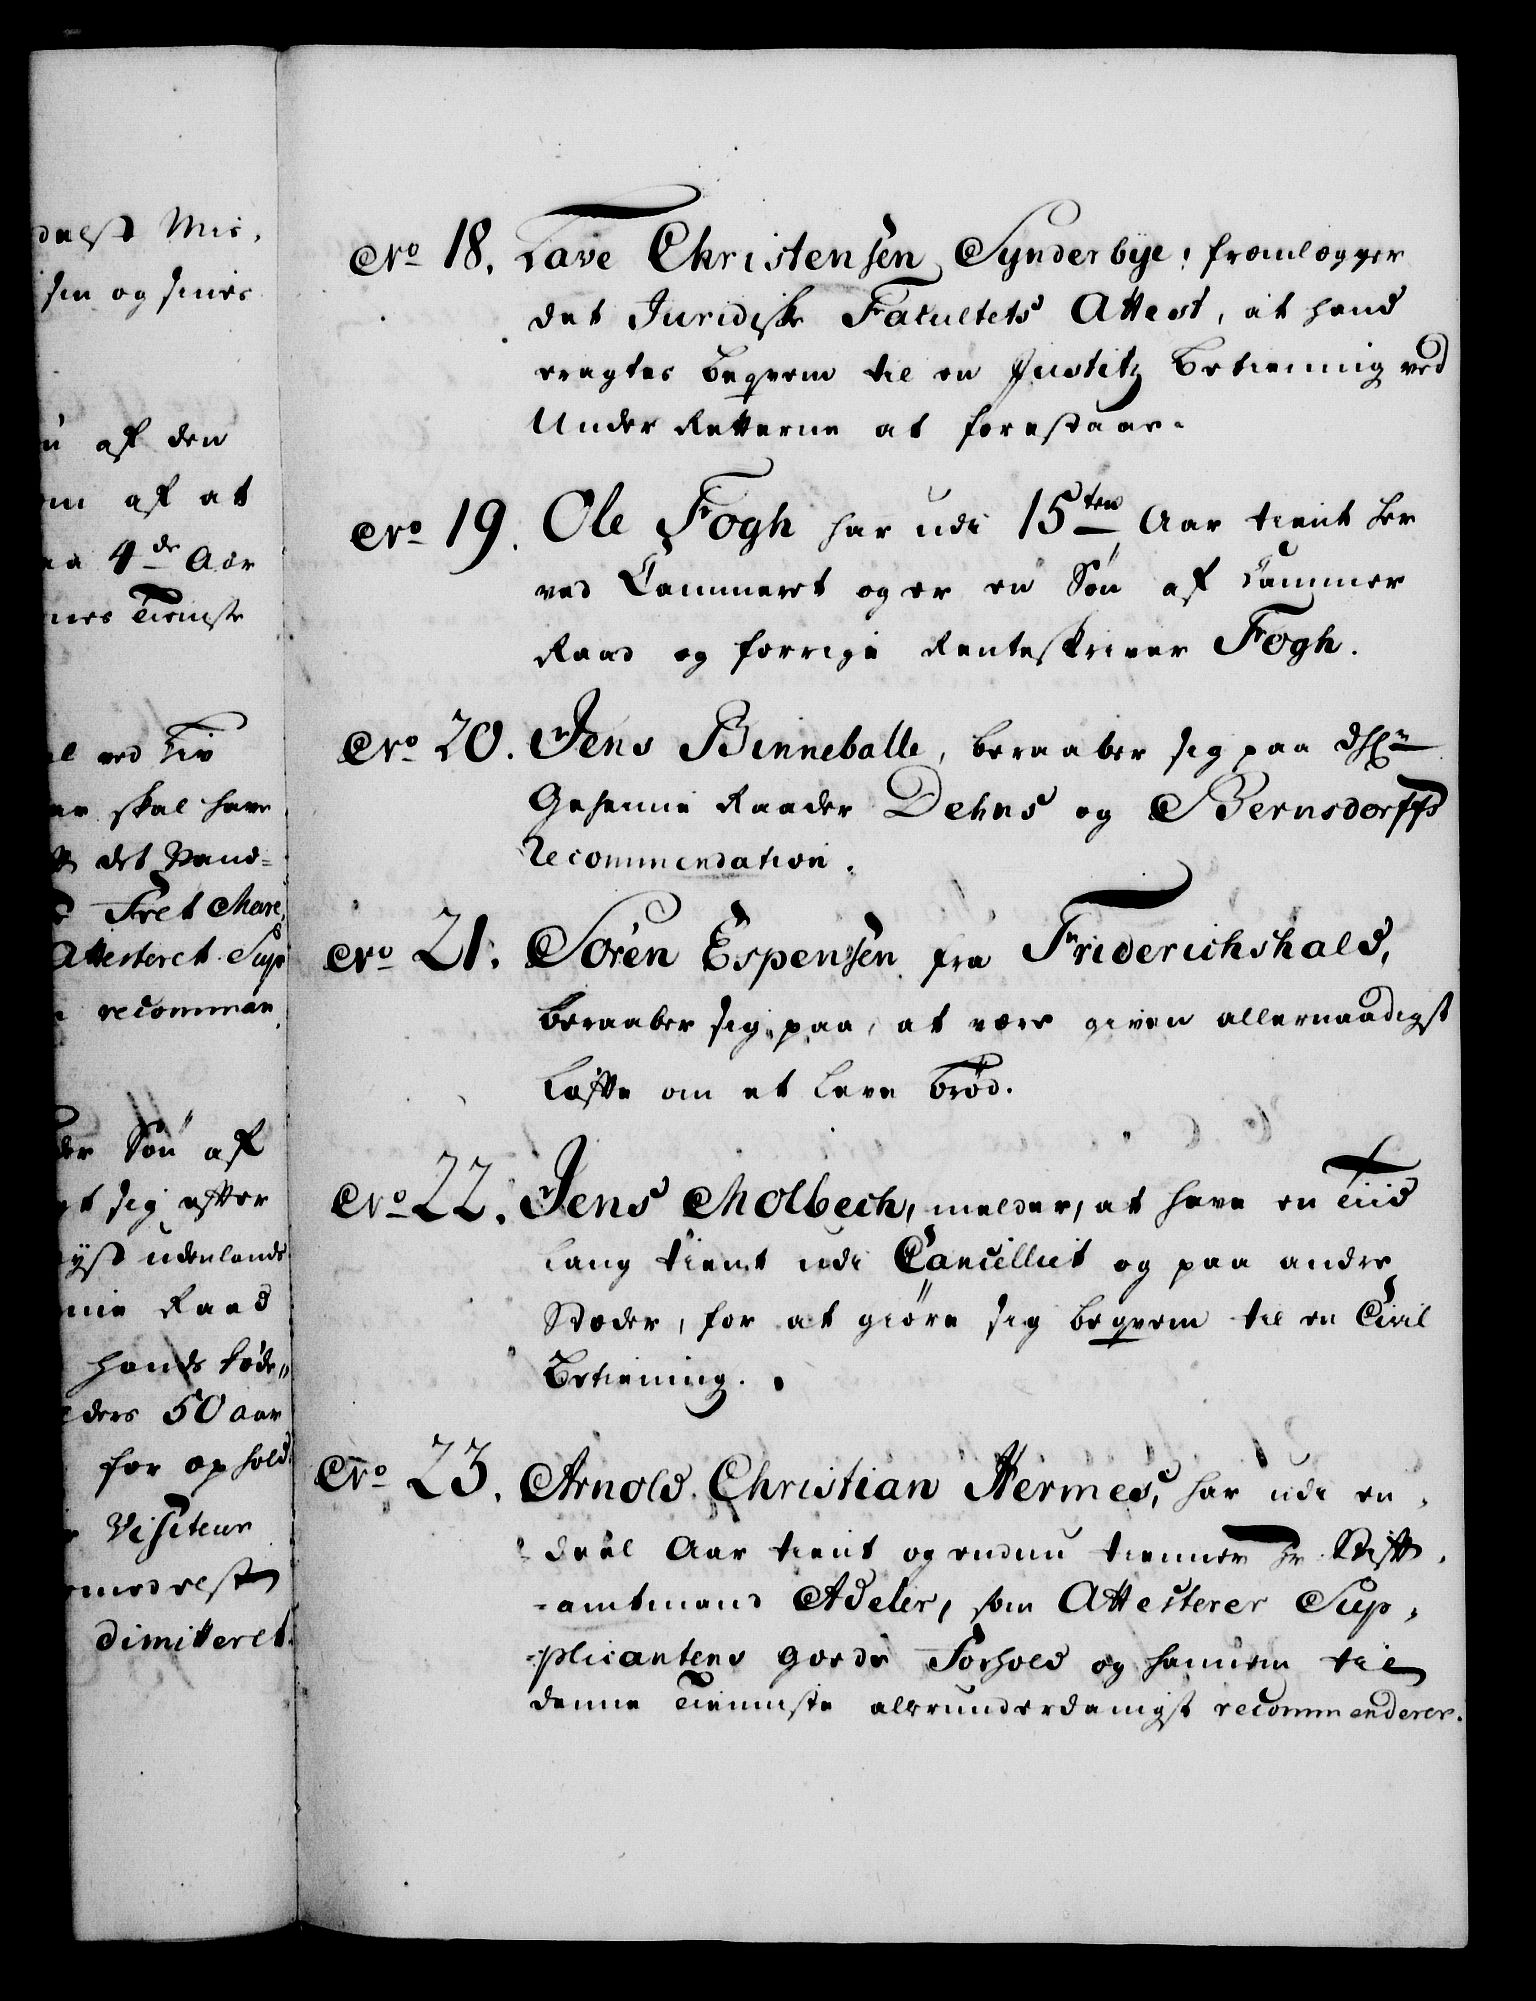 delst Mis,
sen og sines
af den
af at
4de Aar
nes Tieniste
ved Liv
skal have
det Vand=
Fret Mare,
Attesteret Sup
recomman
der Søn af
sig efter
udenlands
Raad
hands føde,,
50 aar
for ophold
Visiteur
dimitteret.
No 18. Tave Christensen Synderbÿe, fremlægger
det Juridiske Facultets Attest, at hand
eragtes beqvem til en Justitz Betienning ved
Under Retterne at forestaae.
No 19. Ole Fogh har udi 15ten Aar tient her
ved Cammeret og er en Søn af Cammer
Raad og forrige Renteskriver Fogh.
No 20. Jens Binneballe, beraaber sig paa
Geheime Raader Dehns og Bernsdorffs
Recommendation.
No 21. Søren Espensen fra Friderichshald,
beraaber sig paa, at være given allernaadigst
Løfte om et Leve brød.
No 22. Jens Molbech, melder, at have en Tiid
lang tient udi Cancelliet og paa andre
Stæder, for at giøre sig beqvem til en Civil
Betiening.
No 23. Arnold Christian Hermes, har udi en
deel Aar tient og endnu tienner Hr. Stift-
-amtmand Adeler, som Attesterer Sup-
-plicantens goede Forhold og hannem til
denne Tienniste allerunderdanigst recommenderer.